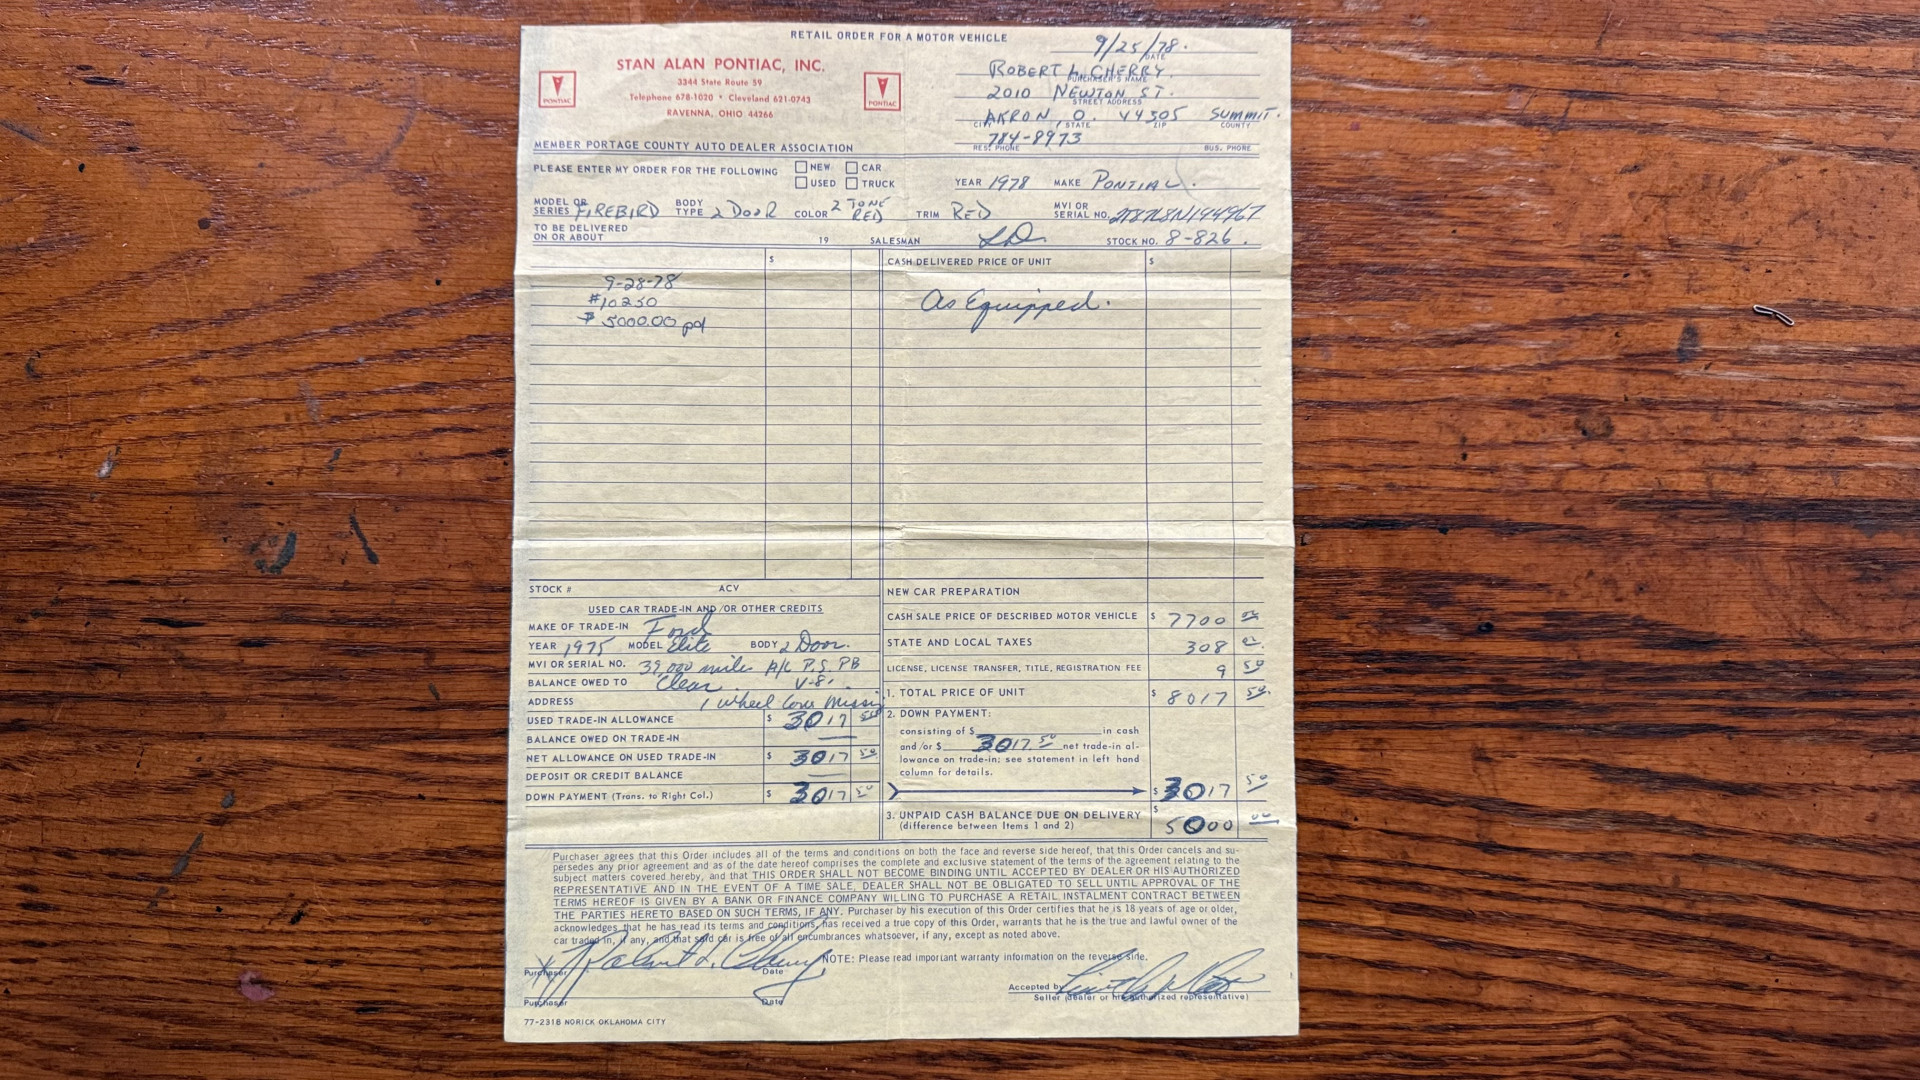 RETAIL ORDER FOR A MOTOR VEHICLE
STAN ALAN PONTIAC, INC.
3344 State Route 59
Telephone 678-1020 • Cleveland 621-0743
RAVENNA, OHIO 44266
PONTIAC
PONTIAC
MEMBER PORTAGE COUNTY AUTO DEALER ASSOCIATION
9/25/78.
DATE
ROBERT L. CHERRY.
PURCHASER'S NAME
2010 NEWTON ST.
STREET ADDRESS
AKRON, O. 44305 SUMMIT.
CITY STATE ZIP COUNTY
784-8973
RES. PHONE BUS. PHONE
PLEASE ENTER MY ORDER FOR THE FOLLOWING NEW CAR
USED TRUCK
YEAR 1978 MAKE PONTIAC.
MODEL OR SERIES FIREBIRD BODY TYPE 2 DOOR COLOR 2 TONE RED TRIM RED MVI OR SERIAL NO.
TO BE DELIVERED ON OR ABOUT 19 SALESMAN STOCK NO. 8-826.
$ CASH DELIVERED PRICE OF UNIT $
9-28-78
#10250
$5000.00 pd
As Equipped.
STOCK # ACV
USED CAR TRADE-IN AND/OR OTHER CREDITS
MAKE OF TRADE-IN Ford
YEAR 1975 MODEL Elite BODY 2 Door.
MVI OR SERIAL NO. 39,000 miles A/C P.S. PB
BALANCE OWED TO Clear V-8.
ADDRESS 1 wheel cover missing
USED TRADE-IN ALLOWANCE $ 3017 50
BALANCE OWED ON TRADE-IN
NET ALLOWANCE ON USED TRADE-IN $ 3017 50
DEPOSIT OR CREDIT BALANCE
DOWN PAYMENT (Trans. to Right Col.) $ 3017 50
NEW CAR PREPARATION
CASH SALE PRICE OF DESCRIBED MOTOR VEHICLE $ 7700 00
STATE AND LOCAL TAXES 308 00
LICENSE, LICENSE TRANSFER, TITLE, REGISTRATION FEE 9 50
1. TOTAL PRICE OF UNIT $ 8017 50.
2. DOWN PAYMENT:
consisting of $ in cash
and/or $ 3017.50 net trade-in al-
lowance on trade-in; see statement in left hand
column for details.
$ 3017 50
3. UNPAID CASH BALANCE DUE ON DELIVERY
(difference between Items 1 and 2) $ 5000 00
Purchaser agrees that this Order includes all of the terms and conditions on both the face and reverse side hereof, that this Order cancels and su-
persedes any prior agreement and as of the date hereof comprises the complete and exclusive statement of the terms of the agreement relating to the
subject matters covered hereby, and that THIS ORDER SHALL NOT BECOME BINDING UNTIL ACCEPTED BY DEALER OR HIS AUTHORIZED
REPRESENTATIVE AND IN THE EVENT OF A TIME SALE, DEALER SHALL NOT BE OBLIGATED TO SELL UNTIL APPROVAL OF THE
TERMS HEREOF IS GIVEN BY A BANK OR FINANCE COMPANY WILLING TO PURCHASE A RETAIL INSTALMENT CONTRACT BETWEEN
THE PARTIES HERETO BASED ON SUCH TERMS, IF ANY. Purchaser by his execution of this Order certifies that he is 18 years of age or older,
acknowledges that he has read its terms and conditions, has received a true copy of this Order, warrants that he is the true and lawful owner of the
car traded in, if any, and that said car is free of all encumbrances whatsoever, if any, except as noted above.
X Robert L. Cherry NOTE: Please read important warranty information on the reverse side.
Purchaser Date
Accepted by
Seller (dealer or his authorized representative)
Purchaser Date
77-231B NORICK OKLAHOMA CITY